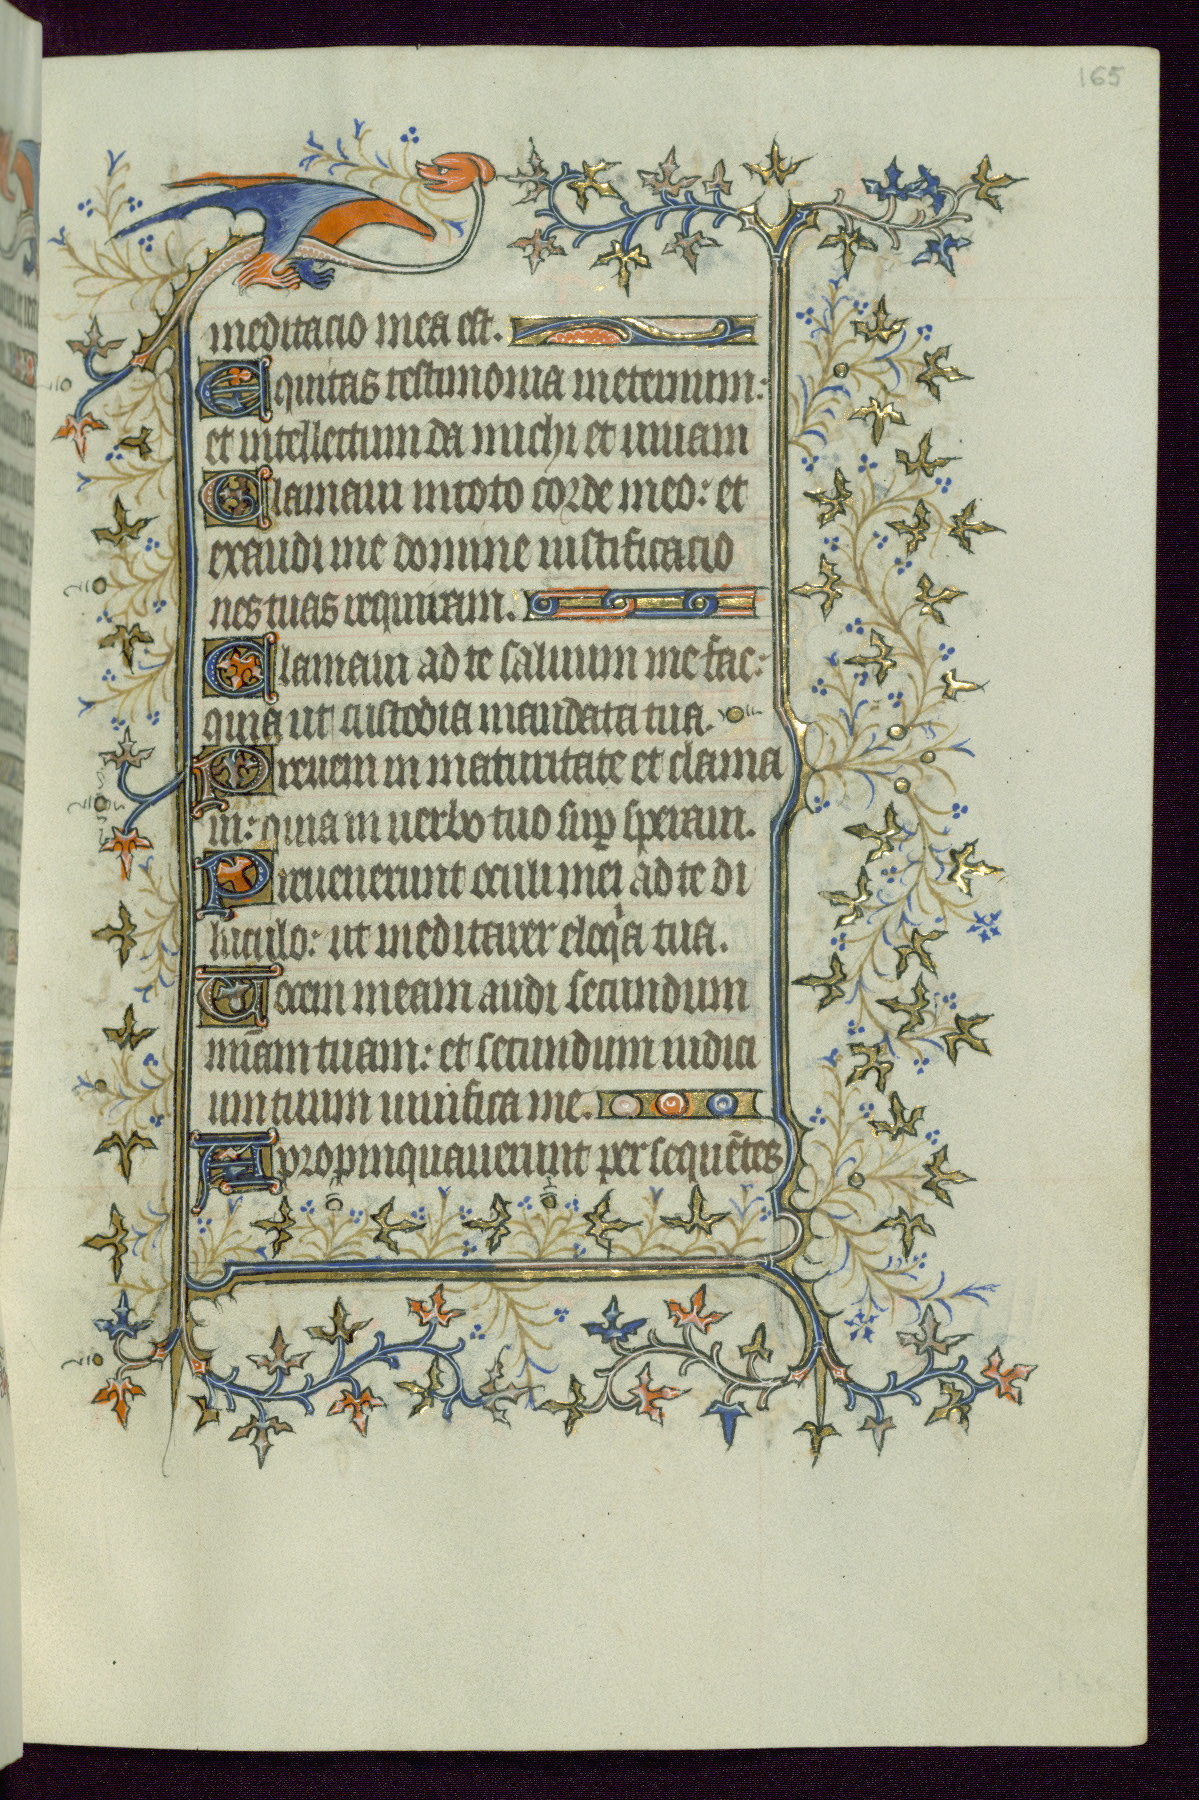 165
meditacio mea est.
Equitas testimonia tua ineternum:
et intellectum da michi et uiuam
Clamaui intoto corde meo: et
exaudi me domine iustificacio
nes tuas requiram.
Clamaui ad te saluum me fac:
quia ut custodia mandata tua.
Preueni in maturitate et clama
ui: quia in uerbo tuo sup speraui.
Preuenerunt oculi mei ad te di
luculo: ut meditarer eloq̇a tua.
Uocem meam audi secundum
mīam tuam: et secundum iudici
um tuum uiuifica me.
Apropinquauerunt persequētes